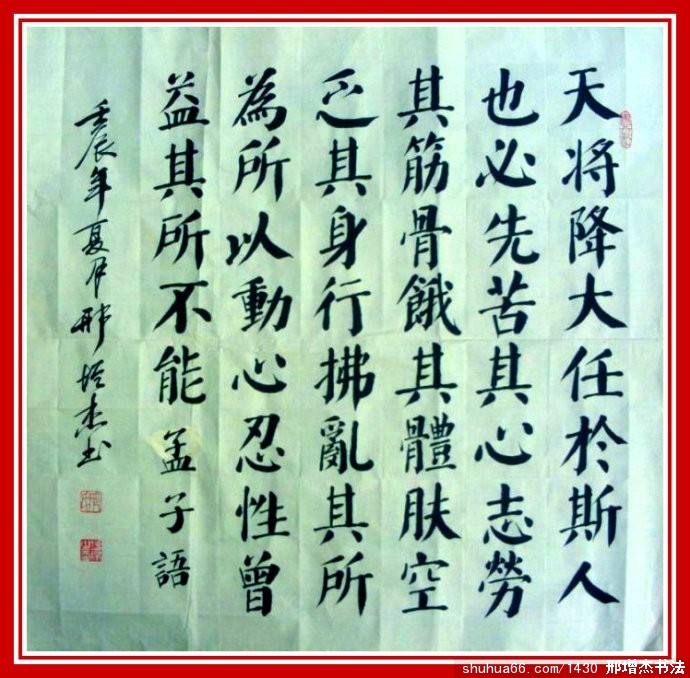 天将降大任於斯人
也必先苦其心志勞
其筋骨餓其體肤空
乏其身行拂亂其所
為所以動心忍性曾
益其所不能孟子語
壬辰年夏月邢增杰书
shuhua66.com/1430 邢增杰书法